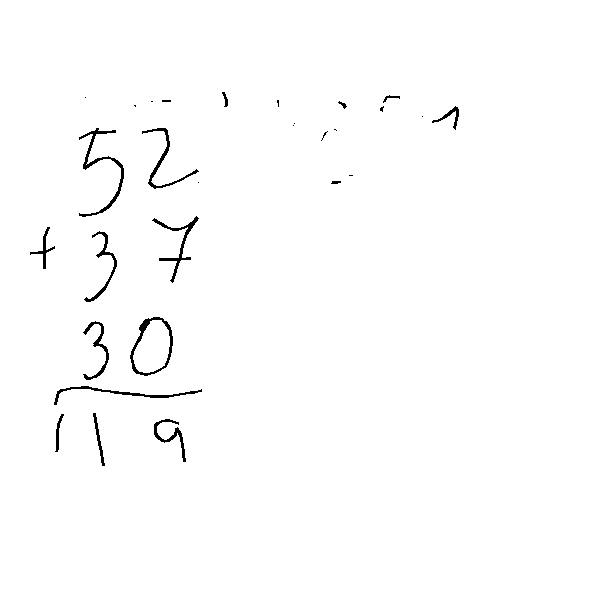 52
+ 37
30
119